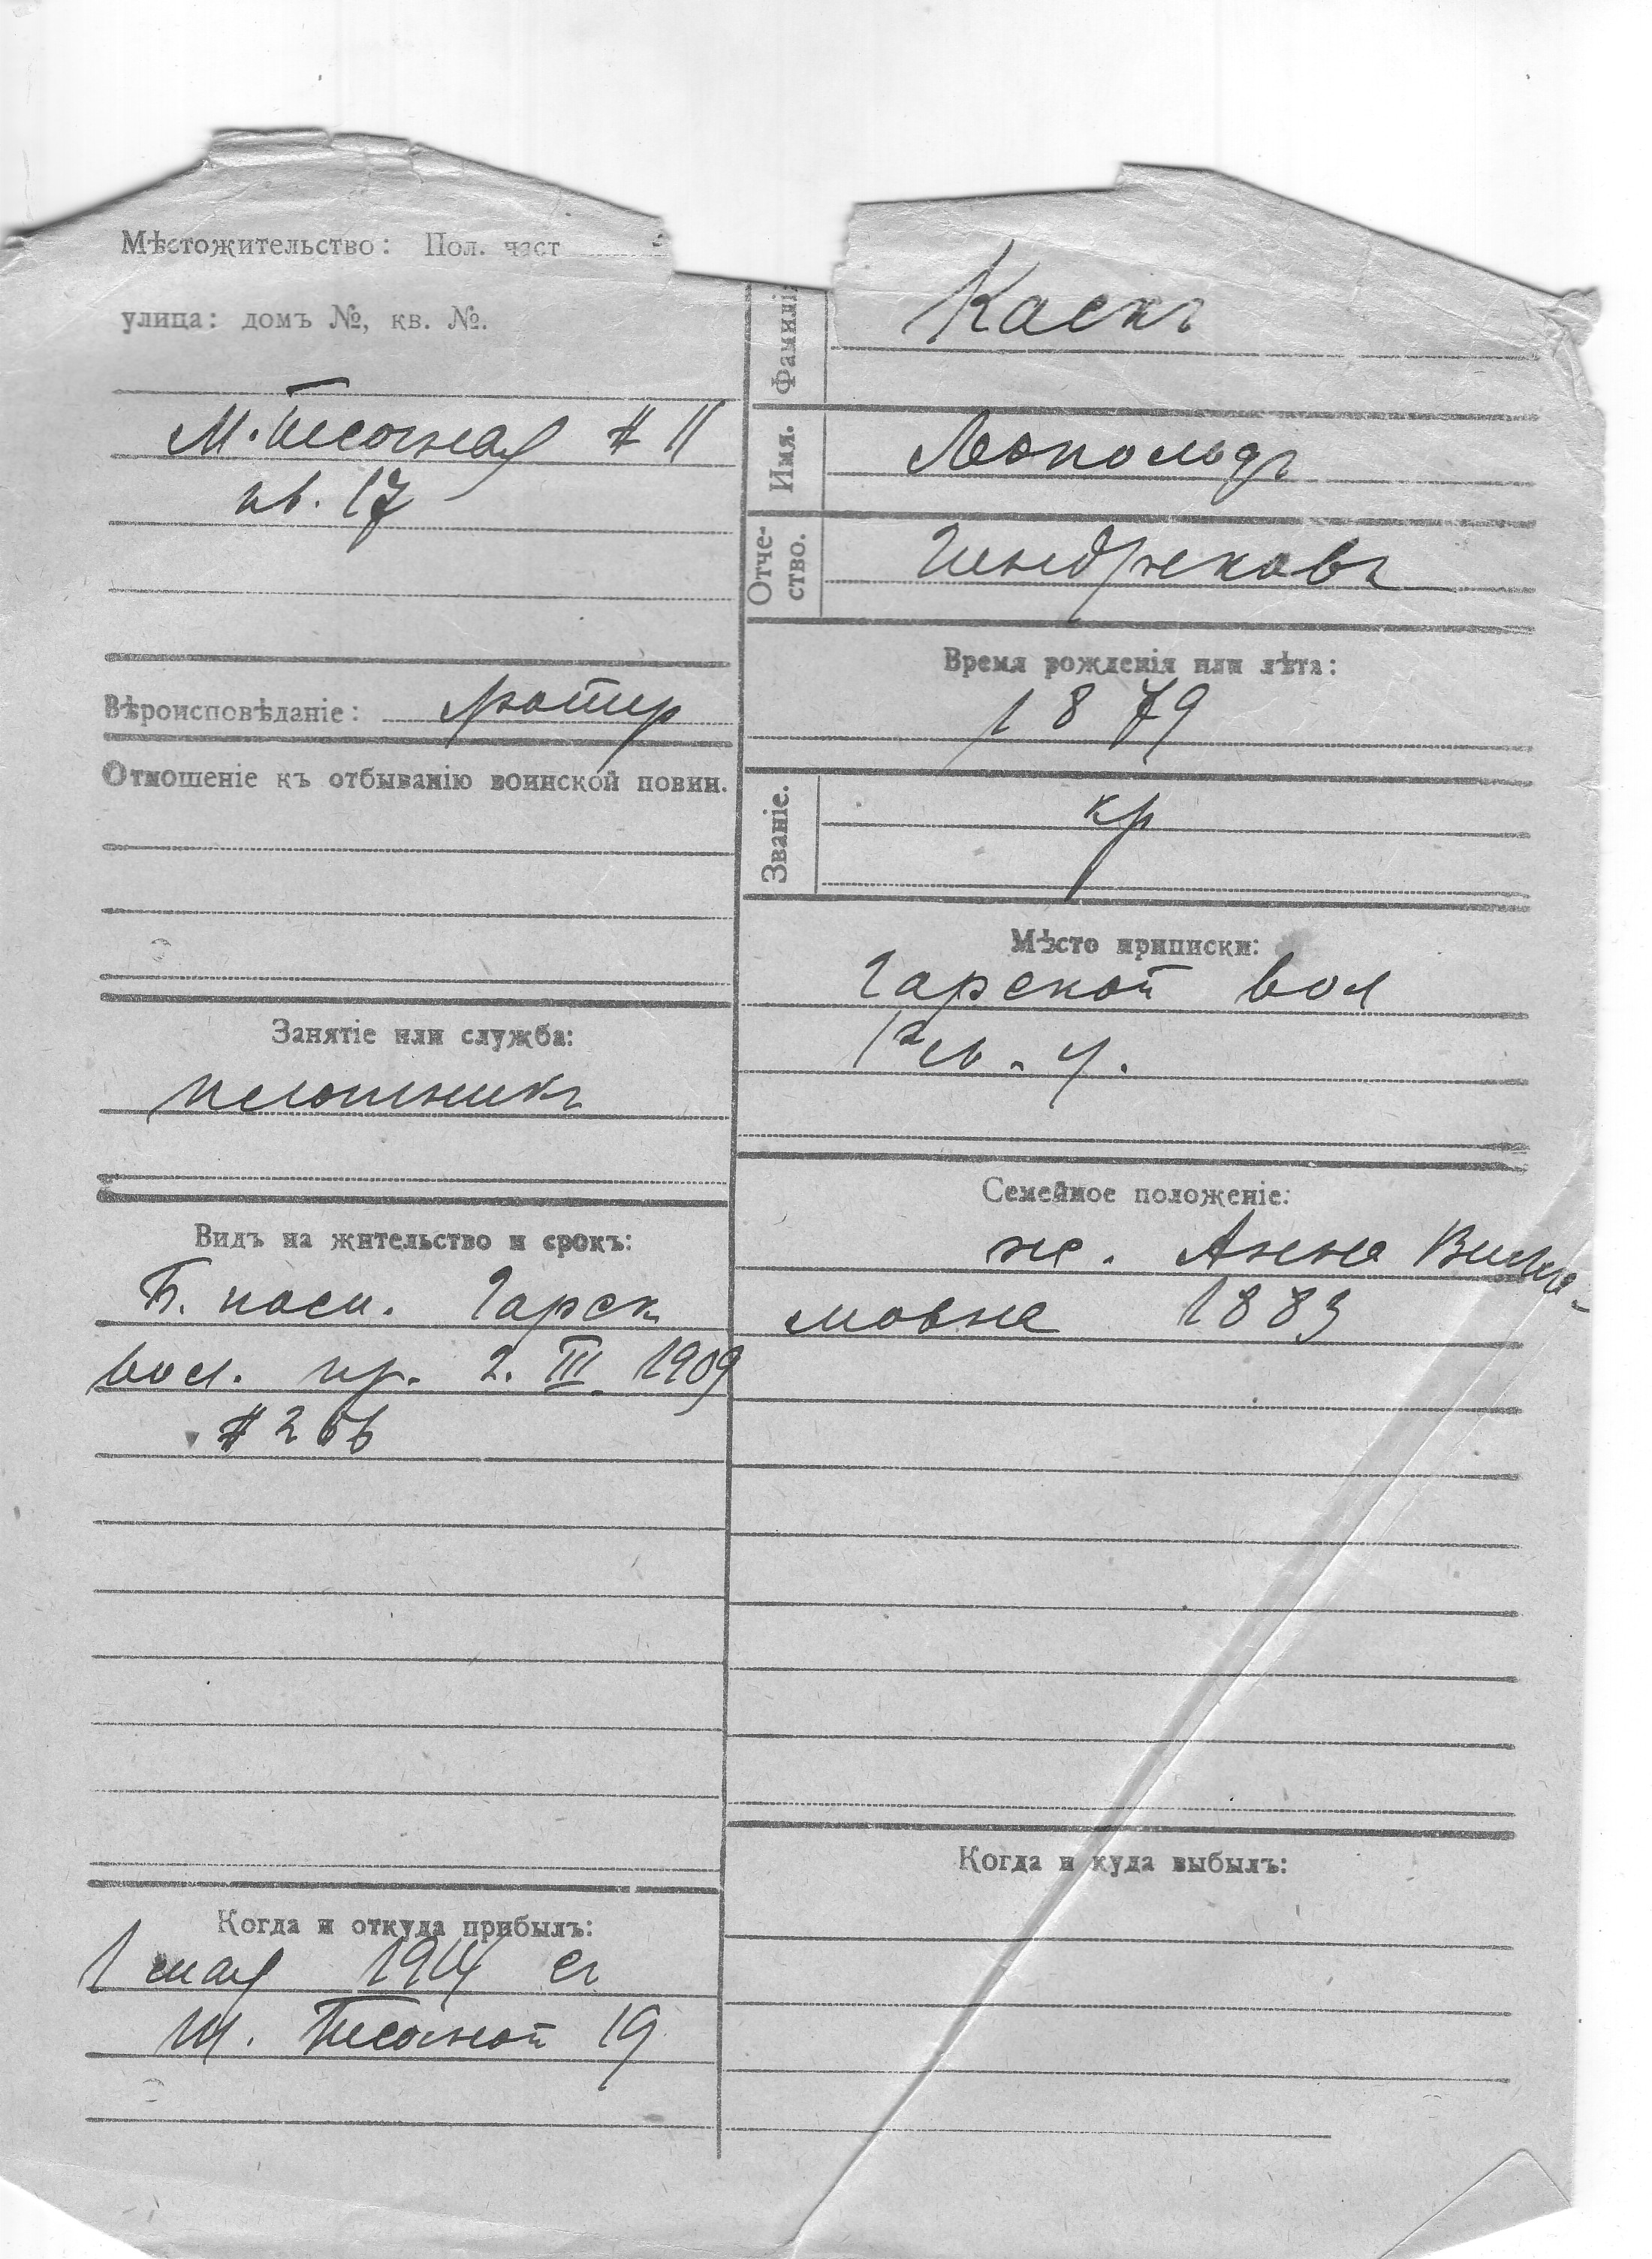 Мѣстожительство: Пол. част
улица: домъ №, кв. №.
М. Песочная # 11
кв. 17
Вѣроисповѣданіе: лютер
Отношеніе къ отбыванію воинской повин.
Занятіе или служба:
плотникъ
Видъ на жительство и срокъ:
Б. пасп. Гарск
вол. пр. 2. III. 1909
# 266
Когда и откуда прибылъ:
1 мая 1914 съ
М. Песочной 19
Фамилі
Каскъ
Имя.
Леопольдъ
Отче-
ство.
Гендриковъ
Время рожденія или лѣта:
1879
Званіе.
кр
Мѣсто приписки:
Гарской вол
у.
Семейное положеніе:
ж. Анна Вилье-
мовна 1883
Когда и куда выбылъ: